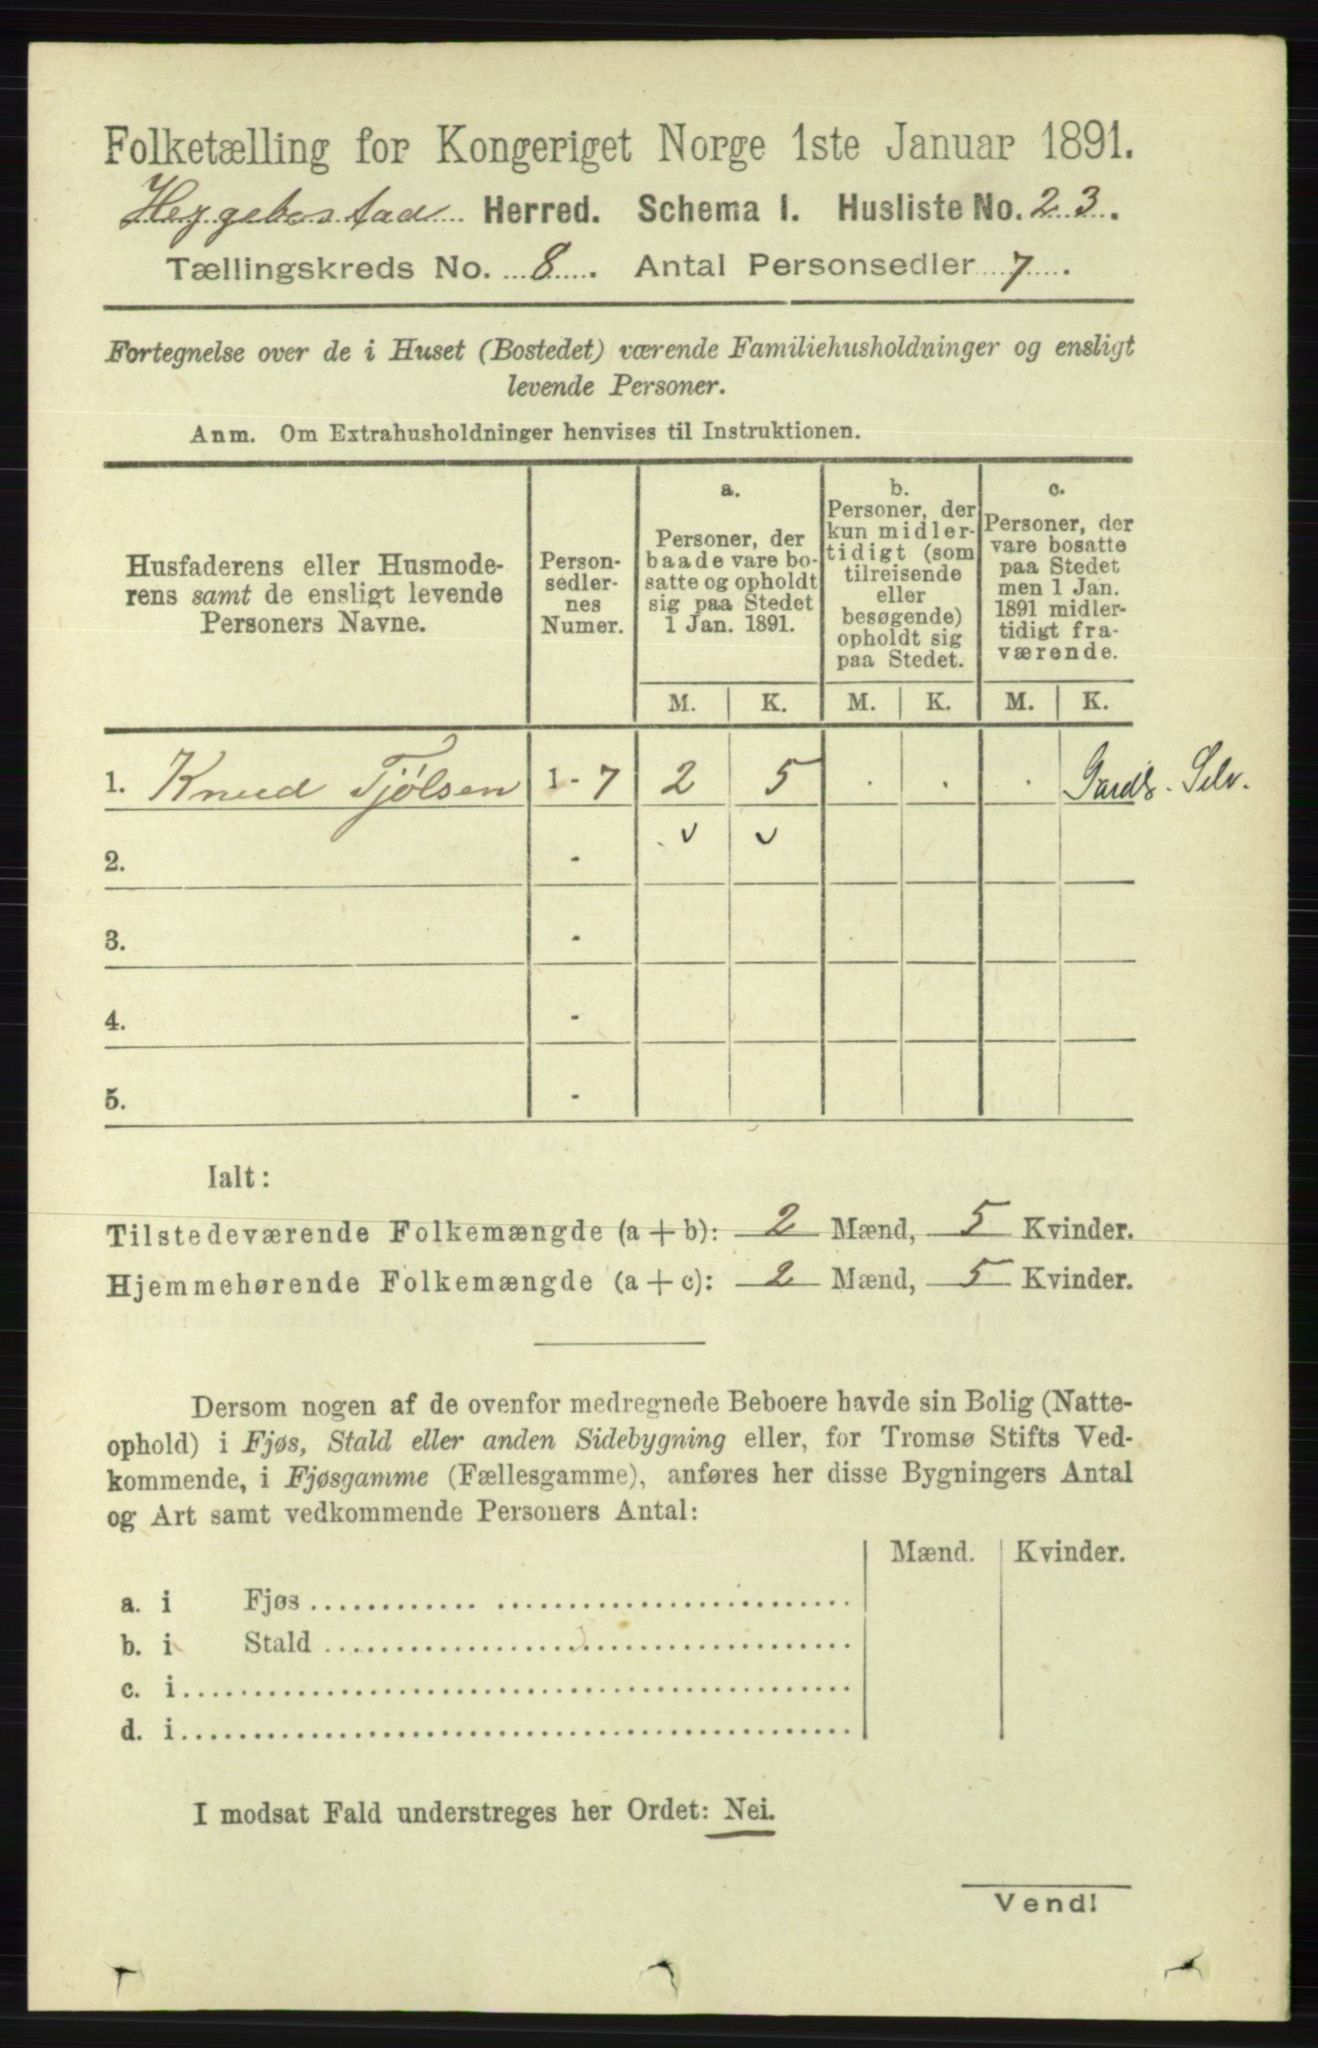 Folketælling for Kongeriget Norge 1ste Januar 1891.
Heggebostad Herred. Schema I. Husliste No. 23.
Tællingskreds No. 8. Antal Personsedler 7.
Fortegnelse over de i Huset (Bostedet) værende Familiehusholdninger og ensligt
levende Personer.
Anm. Om Extrahusholdninger henvises til Instruktionen.
Husfaderens eller Husmode-
rens samt de ensligt levende
Personers Navne.
Person-
sedler-
nes
Numer.
a.
Personer, der
baade vare bo-
satte og opholdt
sig paa Stedet
1 Jan. 1891.
b.
Personer, der
kun midler-
tidigt (som
tilreisende
eller
besøgende)
opholdt sig
paa Stedet.
c.
Personer, der
vare bosatte
paa Stedet
men 1 Jan.
1891 midler-
tidigt fra-
værende.
M. K. M. K. M. K.
1. Knud Tjølsen 1 - 7 2 5 . . . Gardb. Selv.
2. - v v
3. -
4. -
5. -
Ialt:
Tilstedeværende Folkemængde (a + b): 2 Mænd, 5 Kvinder.
Hjemmehørende Folkemængde (a + c): 2 Mænd, 5 Kvinder.
Dersom nogen af de ovenfor medregnede Beboere havde sin Bolig (Natte-
ophold) i Fjøs, Stald eller anden Sidebygning eller, for Tromsø Stifts Ved-
kommende, i Fjøsgamme (Fællesgamme), anføres her disse Bygningers Antal
og Art samt vedkommende Personers Antal:
Mænd. Kvinder.
a. i Fjøs
b. i Stald
c. i
d. i
I modsat Fald understreges her Ordet: Nei.
Vend!